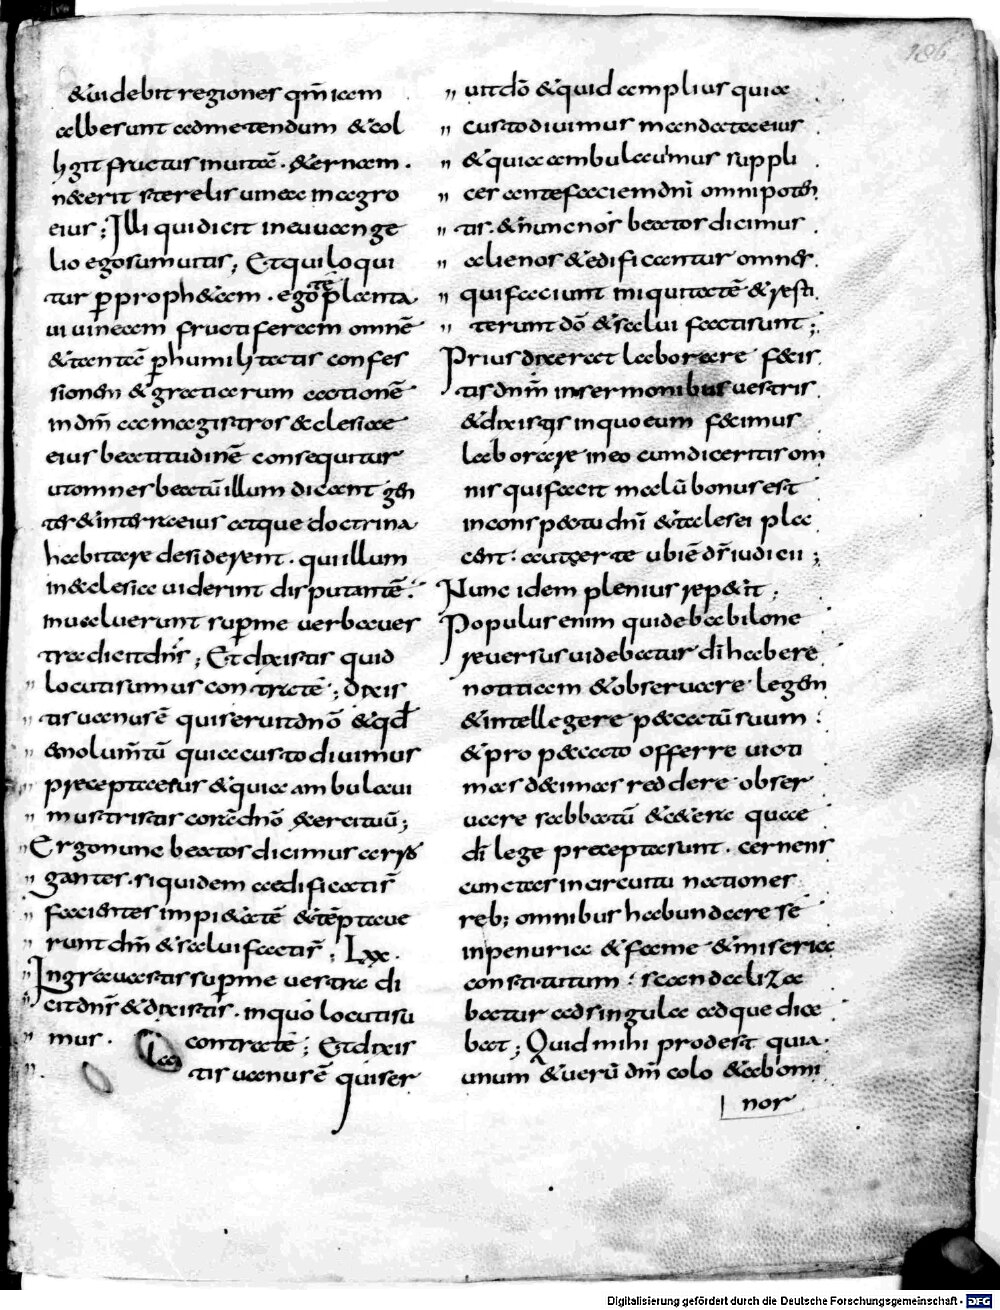 186
&uidebit regiones qm̄ iam
albesunt ad metendum & col
ligit fructus in uita · &ernam ·
n&erit sterelis uinea in agro
eius ; Illi qui dicit in euuange
lio ego sum uitis ; Et qui loqui
tur p̄ proph&am · ego te planta
ui uineam fructiferam omnē
& tantā p̄ humilitatis confes
sionem & gratiarum actionē
in dn̄m ac magistros &clesiae
eius beatitudinē consequitur
ut omnes beatū illum dicant gen
tes & in terra eius atque doctrina
habitare desiderent · qui illum
in &clesia uiderint disputantē :
inualuerunt sup̄ me uerba ues
tra dicit dn̄s ; Et dixistis quid
locuti sumus contra tē ; dixis
tis uanus ē qui seruit dn̄o & qd
emolum̄tū quia custodiuimus
precepta eius & quia ambulaui
mus tristes corā dn̄o exercituū ;
Ergo nunc beatos dicimus arro
gantes · siquidem aedificatis̄
facientes impi&atē & tēptaue
runt dm̄ & salui factis̄ ; Lxx ·
Ingrauastis sup̄ me uestra di
cit dn̄s & dixistis · in quo locuti su
mus · contra te ; Et dixis
tis uanus ē qui ser
uit dō & quid amplius quia
custodiuimus mandata eius
& quia ambulauimus suppli
ces ante faciem dn̄i omnipoten
tis · & nunc nos beatos dicimus
alienos & edificantur omnes
qui faciunt iniquitatē & resti
terunt dō & salui facti sunt ;
Prius dixerat laborare fecis
tis dn̄m in sermonibus uestris
& dixistis in quo eum fecimus
laborare in eo cum diceritis om
nis qui facit malū bonus est
in conspectu dn̄i & tales ei pla
cent : aut certe ubi ē ds̄ iudicii ;
Nunc idem plenius rep&it ;
Populus enim qui de babilone
reuersus uidebatur dī habere
notitiam & obseruare legem
& intellegere peccatū suum :
& pro peccato offerre uicti
mas decimas reddere obser
uare sabbatū & cetera quae
dī lege precepta sunt · cernens
cunctas in circuitu nationes
reb; omnibus habundare se
in penuria & fame & miseria
constitutum : scandaliza
batur ad singula adque dice
bat ; Quid mihi prodest quia
unum & uerū dm̄ colo & abomi
nor
Digitalisierung gefördert durch die Deutsche Forschungsgemeinschaft - DFG